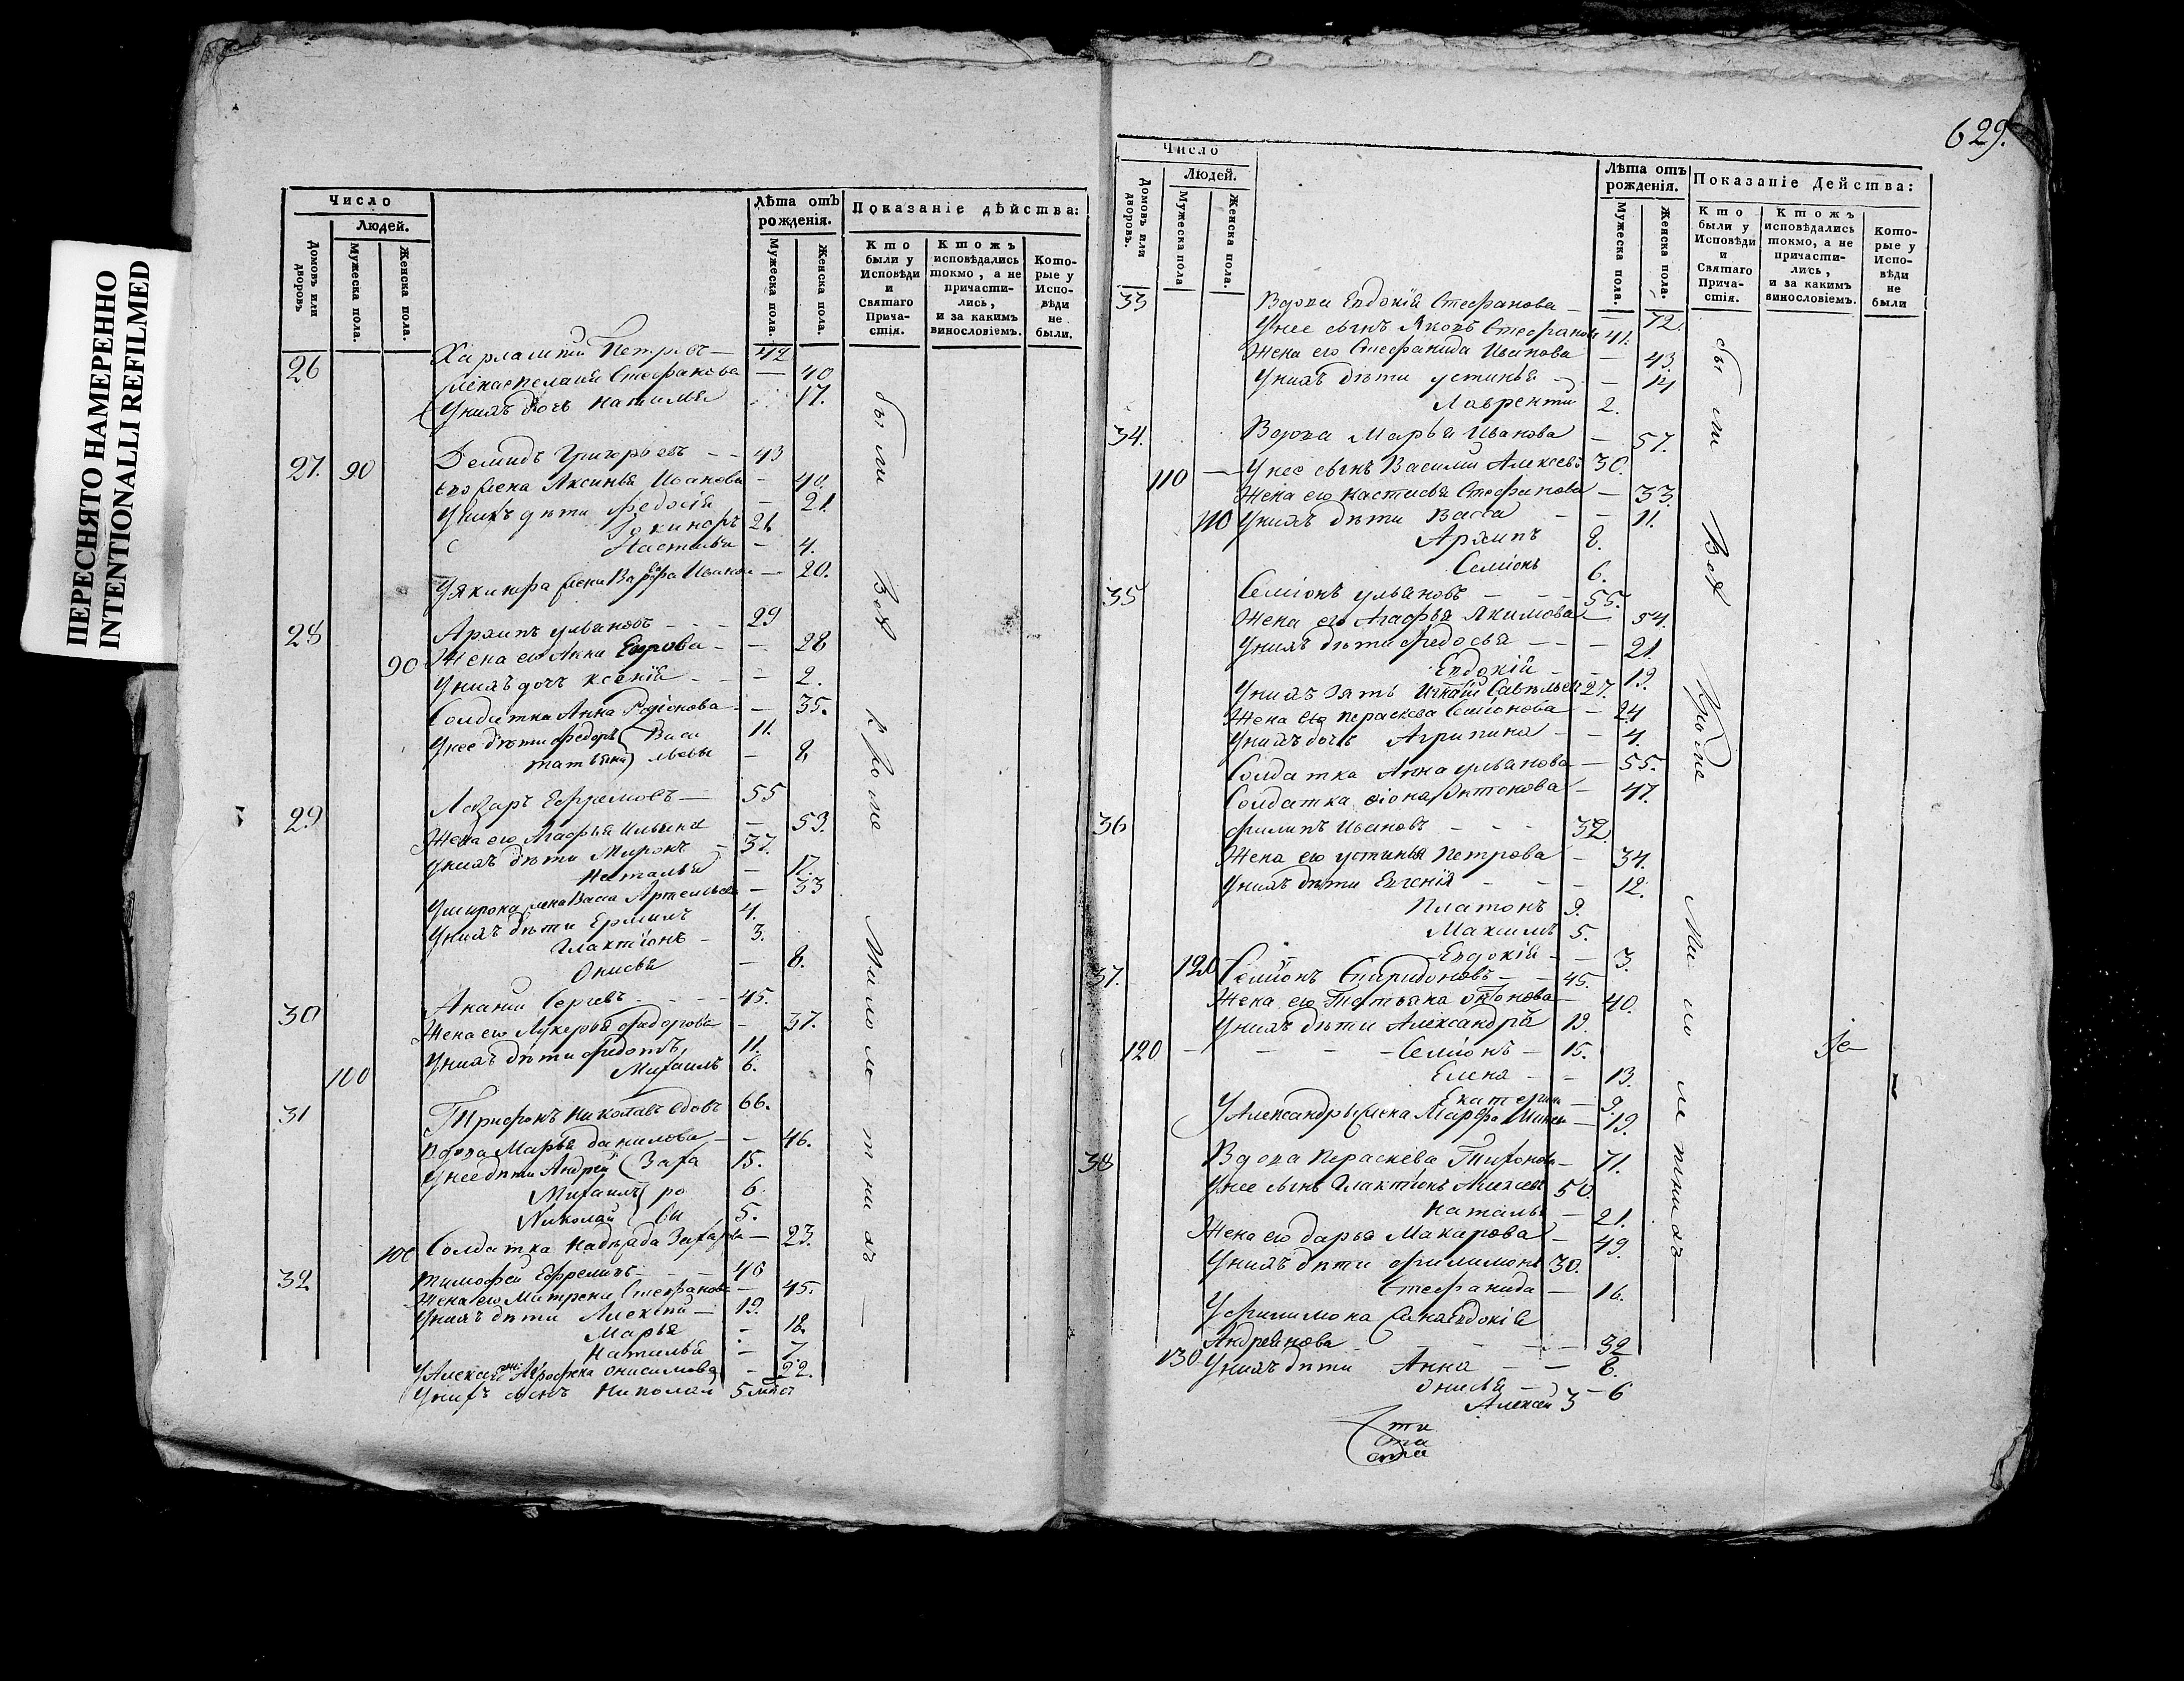 ПЕРЕСНЯТО НАМЕРЕННО
INTENTIONALLI REFILMED
Число
Людей.
Домовъ или дворовъ
Мужеска пола.
Женска пола.
Лѣта отъ рожденія.
Мужеска пола.
Женска пола.
Показаніе дѣйства:
Кто были у Исповѣди и Святаго Прича-стія.
Ктожъ исповѣдались токмо, а не причасти-лись, и за какимъ винословіемъ.
Кото-рые у Испо-вѣди не были.
26 Харлампій Петровъ — 42
Стефанова — 40
Унихъ дочь 17.
27. 90 Демидъ Григорьевъ - - 43
его жена Аксинья Иванова - 40.
Унихъ дѣти Федосія - 21.
21
Настасья - 4.
жена Иванова — 20.
28 Архипъ ульяновъ - - - 29
90 Жена его Анна - - 28
Унихъ дочь ксенія - - - 2.
Солдатка Анна Родіонова - — 35.
Унее дѣти федоръ Васи 11.
татьяна львы — 8
29 Лазарь Ефремовъ — 55
Жена его Агафья Ильина — 53.
Унихъ дѣти Миронъ - 37.
Наталья — 17.
Умирона жена Васса — 33
Унихъ дѣти Ермилъ 4.
Глактіонъ - 3.
Онисья — 8.
30 Ананій Сергевъ - - - - 45.
Жена его Лукерья федорова - 37.
Унихъ дѣти Федотъ 11.
100 Михаилъ 6.
31 Трифонъ Николаевъ вдовъ 66.
вдова Марья данилова - - 46.
Унее дѣти Андрей Заха 15.
Михаилъ ро 6.
Николай вы 5.
100 Солдатка Надежда Захарова — 23.
32 тимофей Ефремовъ - - - 46
Жена его Матрена Стефанова — 45.
Унихъ дѣти Алексѣй — 19.
Марья - 18.
Наталья — 7.
Алексѣя жена онисимова - 22.
Унихъ сынъ Николай 5
были Всѣ кромѣ Малолѣтнихъ —
629.
Число
Людей.
Домовъ или дворовъ.
Мужеска пола
Женска пола.
Лѣта отъ рожденія.
Мужеска пола.
Женска пола.
Показаніе Действа:
Кто были у Исповѣди и Святаго Прича-стія.
Ктожъ исповѣдались токмо, а не причасти-лись, и за какимъ винословіемъ.
Кото-рые у Испо-вѣди не были
33 Вдова Евдокія Стефанова — 72.
Унее сынъ Яковъ Стефановъ 41.
Жена его Стефанида Иванова — 43.
Унихъ дѣти устинья - - 14
Лаврентій 2.
34. Вдова Марья Иванова - 57.
110 — Унее сынъ Василій Алексевъ 30.
Жена его настасья Стефанова — 33
110 Унихъ дѣти Васса - - 11.
Архипъ 8.
Семіонъ 6.
35 Семіонъ ульяновъ - - - 55.
Жена его Агафья Якимова — 54.
Унихъ дѣти федосья - - - 21.
Евдокія - - 19.
Унихъ зять Игнатій Савѣльевъ 27.
Жена его параскева Семіонова - 24
Унихъ дочь Агрипина - - 4.
Солдатка Анна ульянова — 55.
Солдатка Антонова — 47.
36 филипъ Ивановъ - - - 32.
Жена его устинья Петрова - 34.
Унихъ дѣти Евгенія - - - 12.
Платонъ 9.
Максимъ 5.
Евдокія - - 3.
37. 120 Семіонъ Спиридоновъ - - 45.
Жена его Татьяна Антонова — 40.
Унихъ дѣти Александръ 19.
120 - - - - Семіонъ - 15.
Елена - - 13.
Екатерина — 9.
У Александры жена Марфа — 19.
38 Вдова параскева Тихонова — 71.
Унее сынъ Глактіонъ 50.
Наталья — 21.
Жена его дарья Макарова - 49.
Унихъ дѣти филимонъ 30.
Стефанида — 16.
Уфилимона жена Евдокія
Андреянова - - - - - 32
130 Унихъ дѣти Анна - - 8.
Онисья — - 6
Алексей 3
были Всѣ кромѣ Малолѣтнихъ —